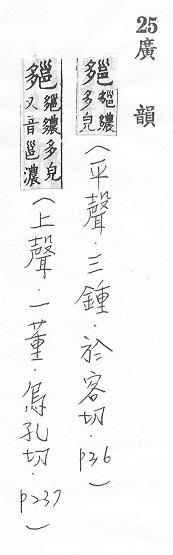 25 廣韻
多皃
（平聲．三鍾．於容切．p36）
多皃又音邕濃
（上聲．一董．烏孔切．p237）